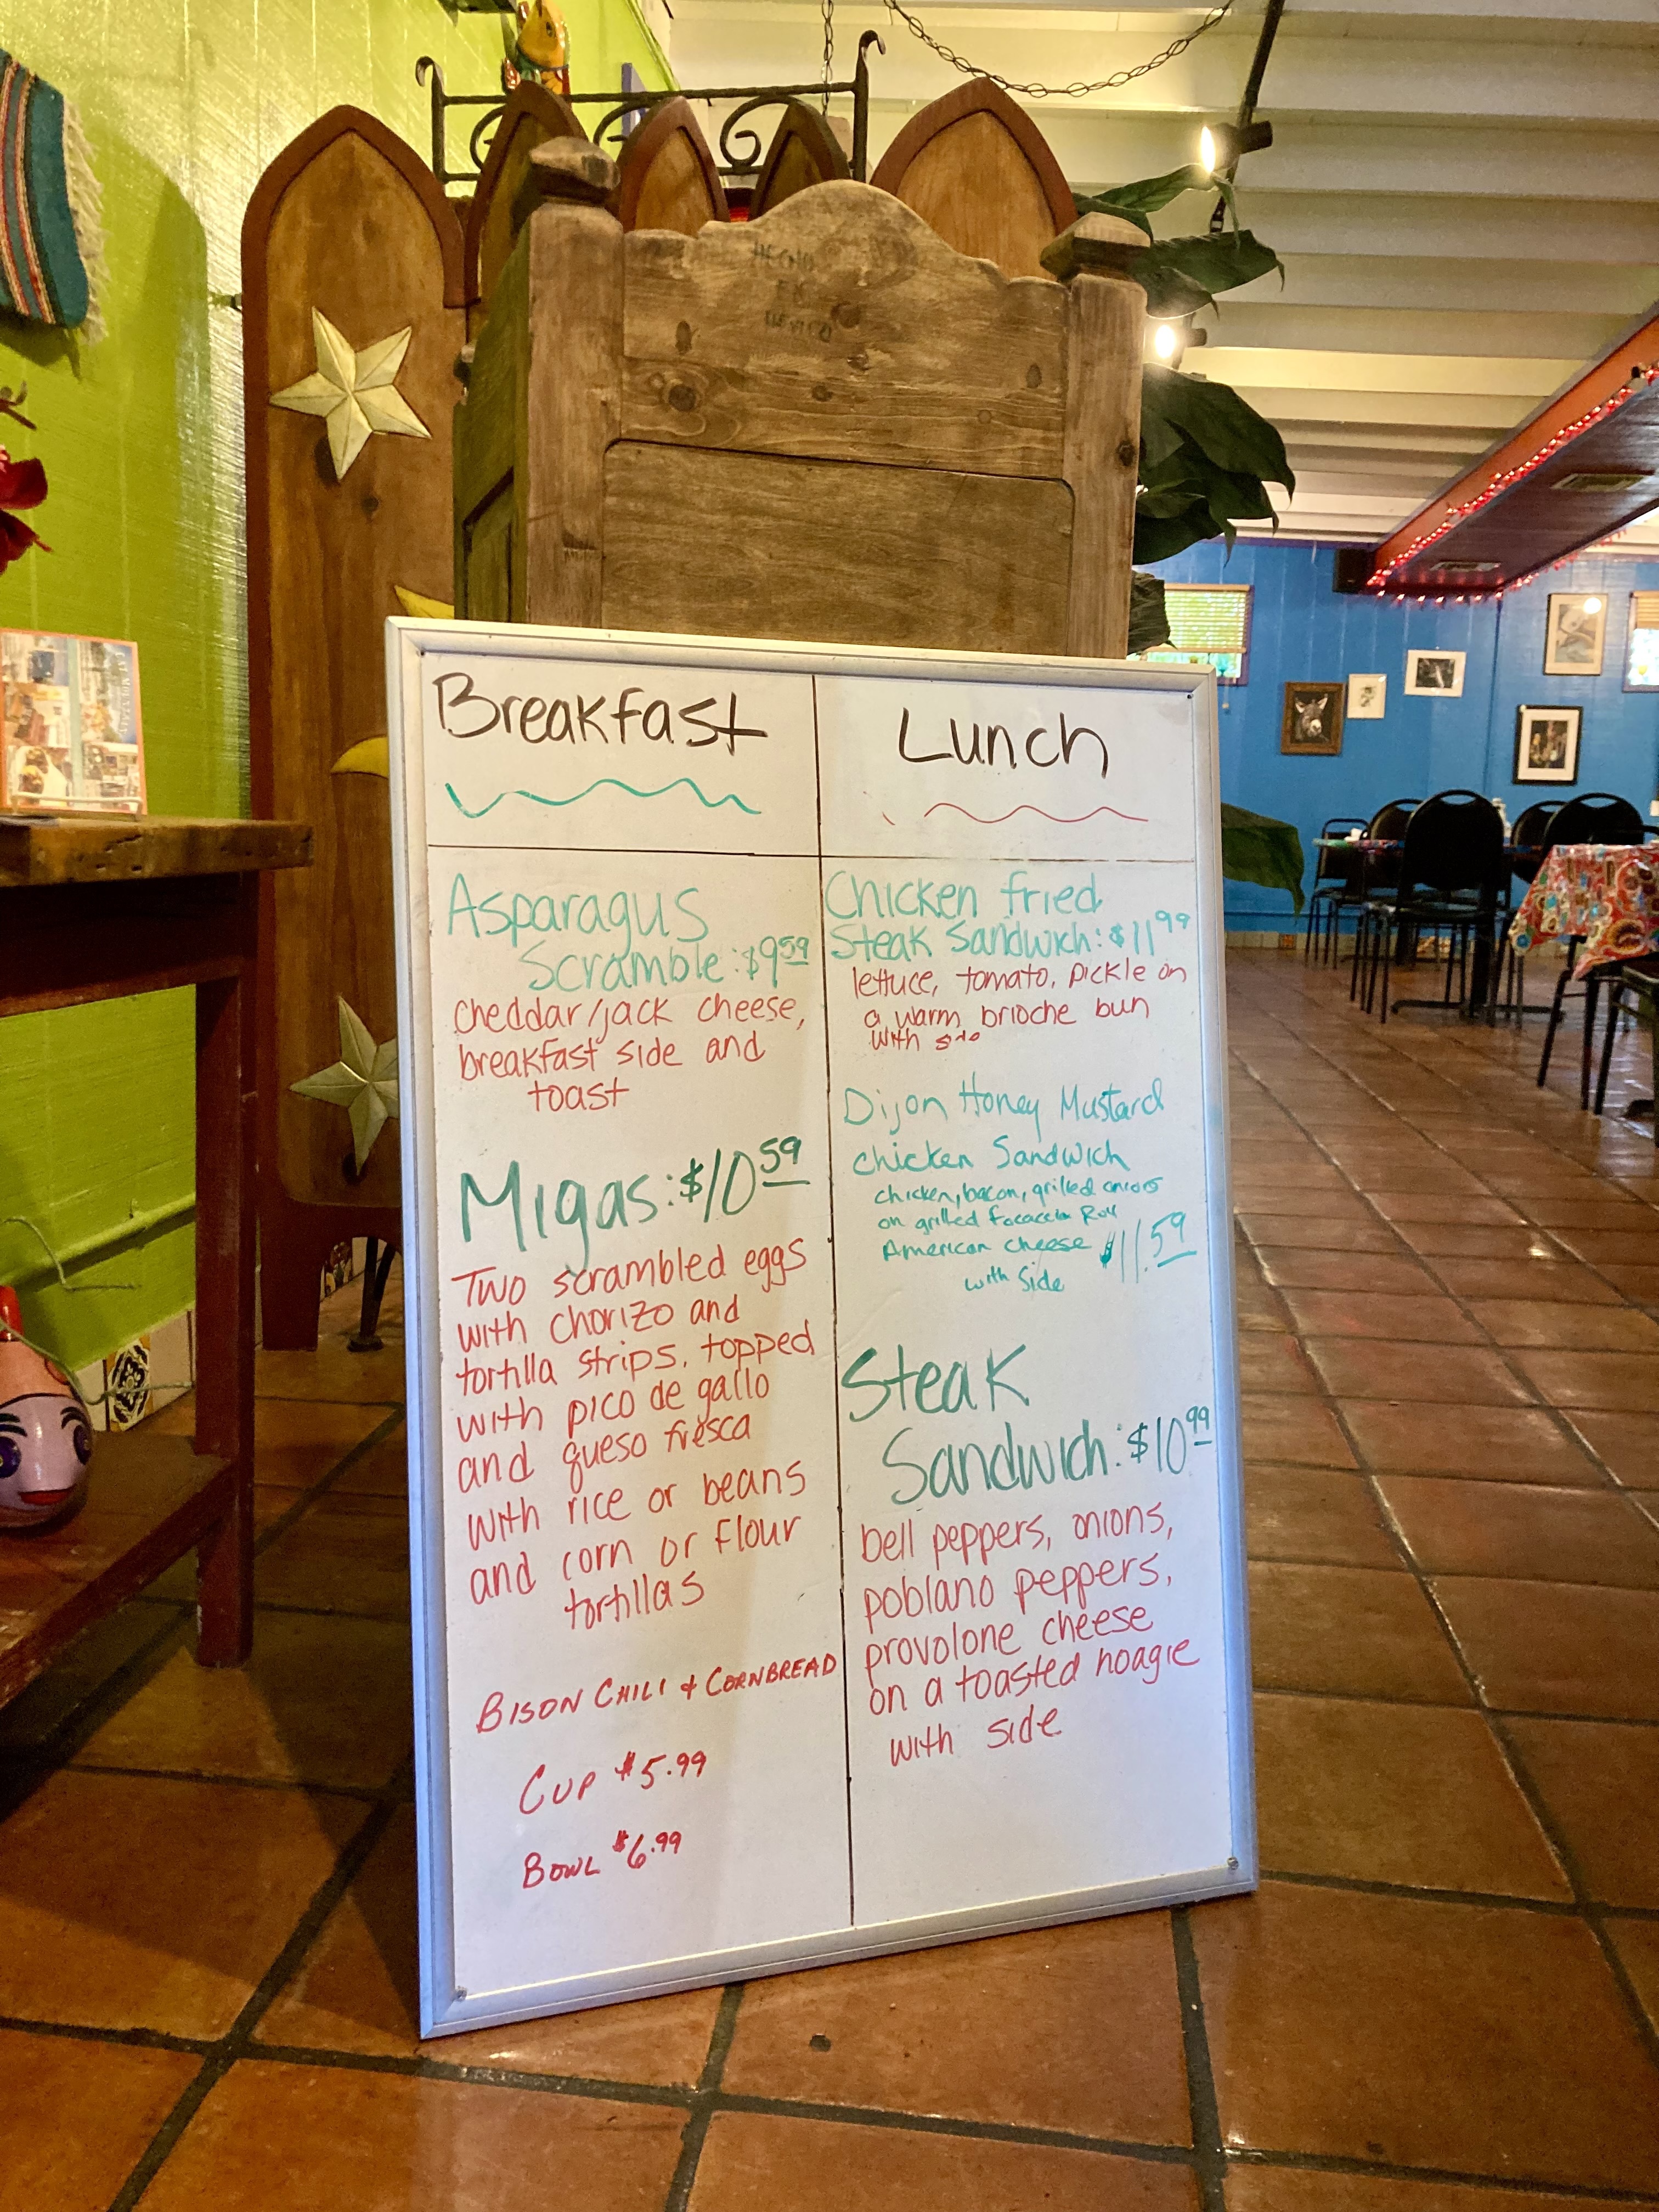 HECHO
EN
MEXICO
Breakfast
Asparagus
Scramble: $9.59
cheddar/jack cheese,
breakfast side and
toast
Migas: $10.59
Two scrambled eggs
with chorizo and
tortilla strips, topped
with pico de gallo
and queso fresca
with rice or beans
and corn or flour
tortillas
BISON CHILI & CORNBREAD
CUP $5.99
BOWL $6.99
Lunch
Chicken fried
Steak Sandwich: $11.99
lettuce, tomato, pickle on
a warm brioche bun
with side
Dijon Honey Mustard
chicken Sandwich
chicken, bacon, grilled onions
on grilled focaccia Roll
American cheese $11.59
with side
Steak
Sandwich: $10.99
bell peppers, onions,
poblano peppers,
provolone cheese
on a toasted hoagie
with side